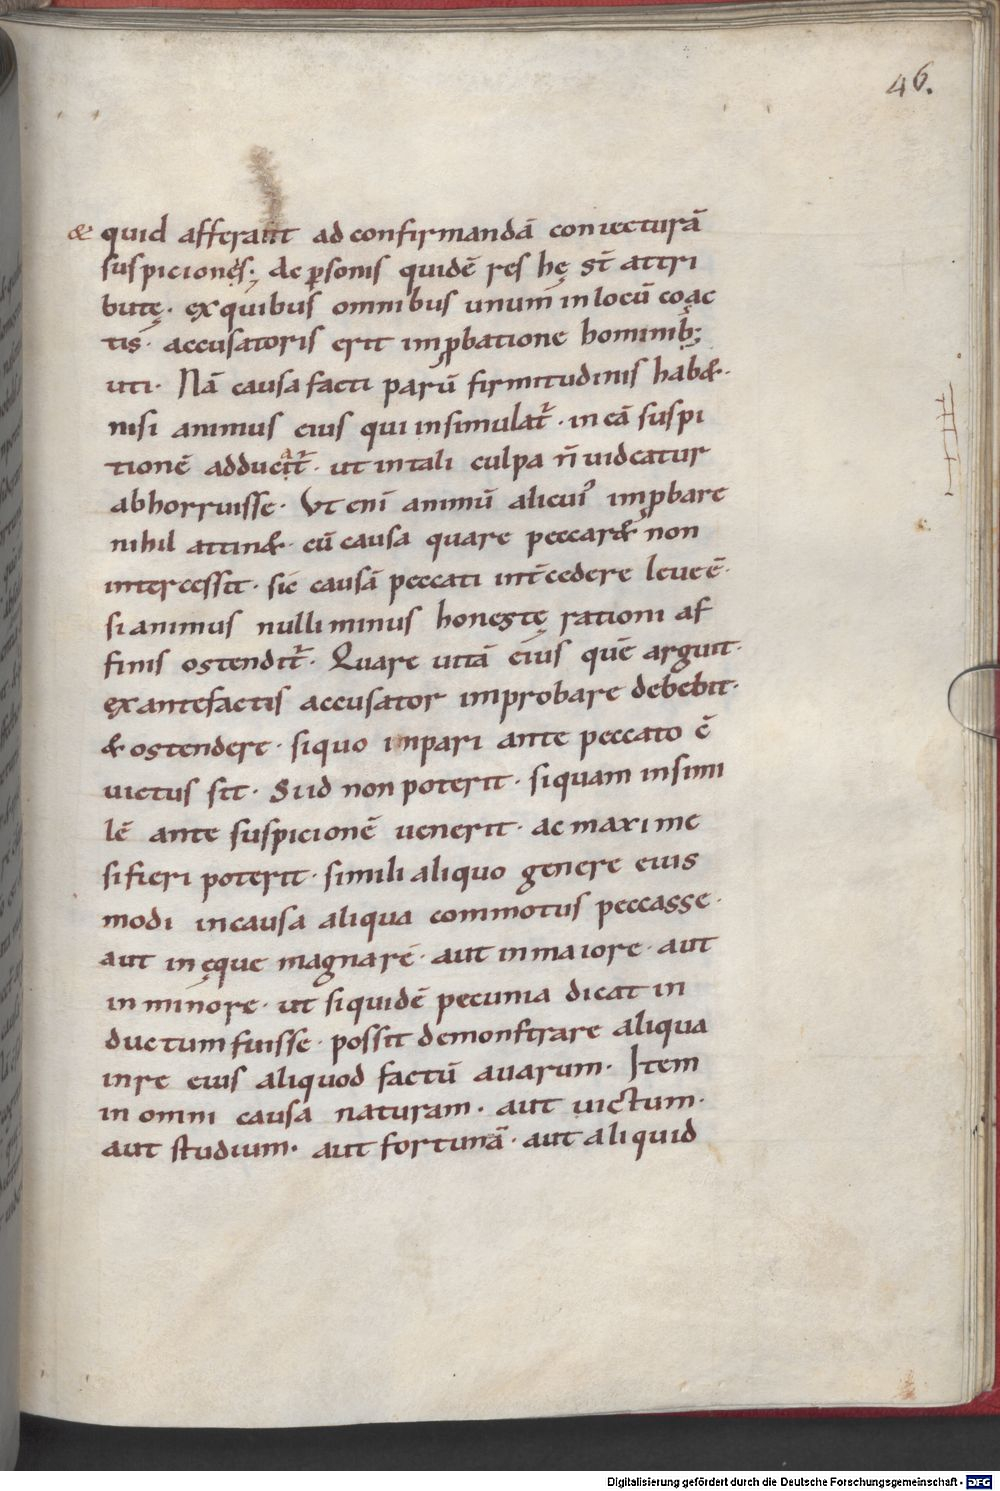 46.
& quid afferant ad confirmandā coniecturā
suspicionęs; Ac ꝑsonis quidē res hę st̄ attri
butę. ex quibus omnibus unum in locū coac
tis. accusatoris erit imꝓbatione hominibꝫ
uti. Nā causa facti parū firmitudinis hab&.
nisi animus eius qui insimulat᷑. in eā suspi
tionē adducit᷑. ut in tali culpa n̄ uideatur
abhorruisse. Vt eni animū alicui᾽ imꝓbare
nihil attin&. cū causa quare peccar& non
intercessit. sic causā peccati int̄cedere leue ē.
si animus nulli minus honestę rationi af
finis ostendit᷑. Quare uitā eius quē arguit.
ex antefactis accusator improbare debebit.
& ostendere. si quo in pari ante peccato ē
uictus sit. Si id non poterit. si quam in simi
lē ante suspicionē uenerit. ac maxime
si fieri poterit. simili aliquo genere eius
modi in causa aliqua commotus peccasse.
aut in ęque magna re. aut in maiore. aut
in minore. ut si quidē pecunia dicat in
ductum fuisse. possit demonstrare aliqua
in re eius aliquod factū auarum. Item
in omni causa naturam. aut uictum.
aut studium. aut fortunā. aut aliquid
Digitalisierung gefördert durch die Deutsche Forschungsgemeinschaft - DFG